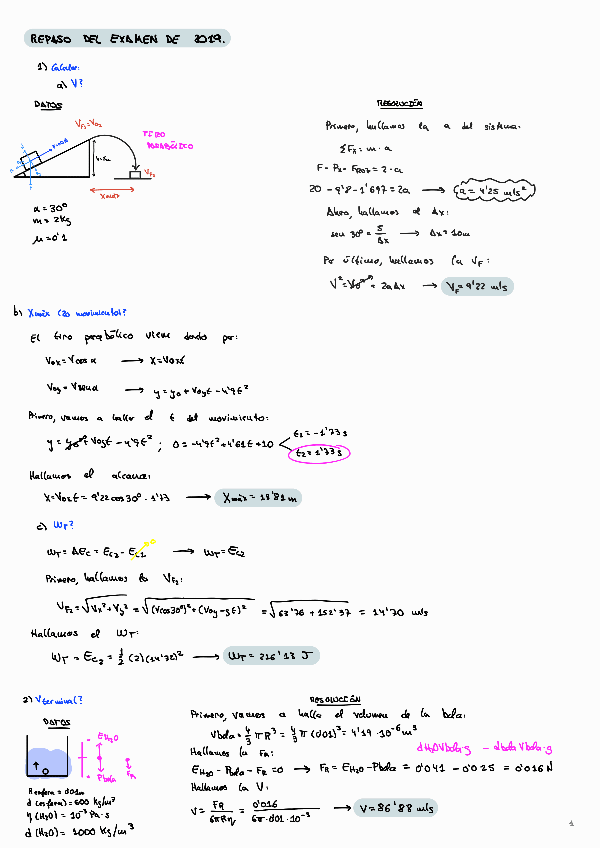 REPASO DEL EXAMEN DE 2019.
1) Calcular:
a) V?
DATOS
VF1=V02
TIRO
PARABÓLICO
F=20N
h=5m
Xmáx
VF2
α = 30º
m = 2kg
μ=0'1
RESOLUCIÓN
Primero, hallamos la a del sistema:
ΣFx = m · a
F - Px - FROZ = 2 · a
20 - 9'8 - 1'697 = 2a → a = 4'25 m/s²
Ahora, hallamos el Δx:
sen 30º = 5/Δx → Δx = 10m
Por último, hallamos la VF:
V² = V0² = 2aΔx → VF = 9'22 m/s
b) Xmáx (2o movimiento)?
El tiro parabólico viene dado por:
V0x = V cos α → X = V0xt
V0y = V sen α → y = y0 + V0yt - 4'9t²
Primero, vamos a hallar el t del movimiento:
y = y0 + V0yt - 4'9t² ; 0 = -4'9t² + 4'61t + 10
t1 = -1'73 s
t2 = 1'73 s
Hallamos el alcance:
X = V0xt = 9'22 cos 30º · 1'73 → Xmáx = 13'81 m
c) WT?
WT = ΔEc = Ec2 - Ec1 → WT = Ec2
Primero, hallamos la VF2:
VF2 = √Vx² + Vy² = √(Vcos30º)² + (V0y - gt)² = √63'76 + 152'37 = 14'70 m/s
Hallamos el WT:
WT = Ec2 = 1/2 (2)(14'70)² → WT = 216'13 J
2) Vterminal?
DATOS
EH2O
Pbola
FR
R esfera = 0'01m
d (esfera) = 600 kg/m³
η (H2O) = 10⁻³ Pa · s
d (H2O) = 1000 kg/m³
RESOLUCIÓN
Primero, vamos a halla el volumen de la bola:
Vbola = 4/3 π R³ = 4/3 π (0'01)³ = 4'19 · 10⁻⁶ m³
Hallamos la FR:
dH2O Vbola · g - dbola Vbola · g
EH2O - Pbola - FR = 0 → FR = EH2O - Pbola = 0'041 - 0'025 = 0'016 N
Hallamos la V:
V = FR/6πRη = 0'016/6π · 0'01 · 10⁻³ → V = 86'88 m/s
1